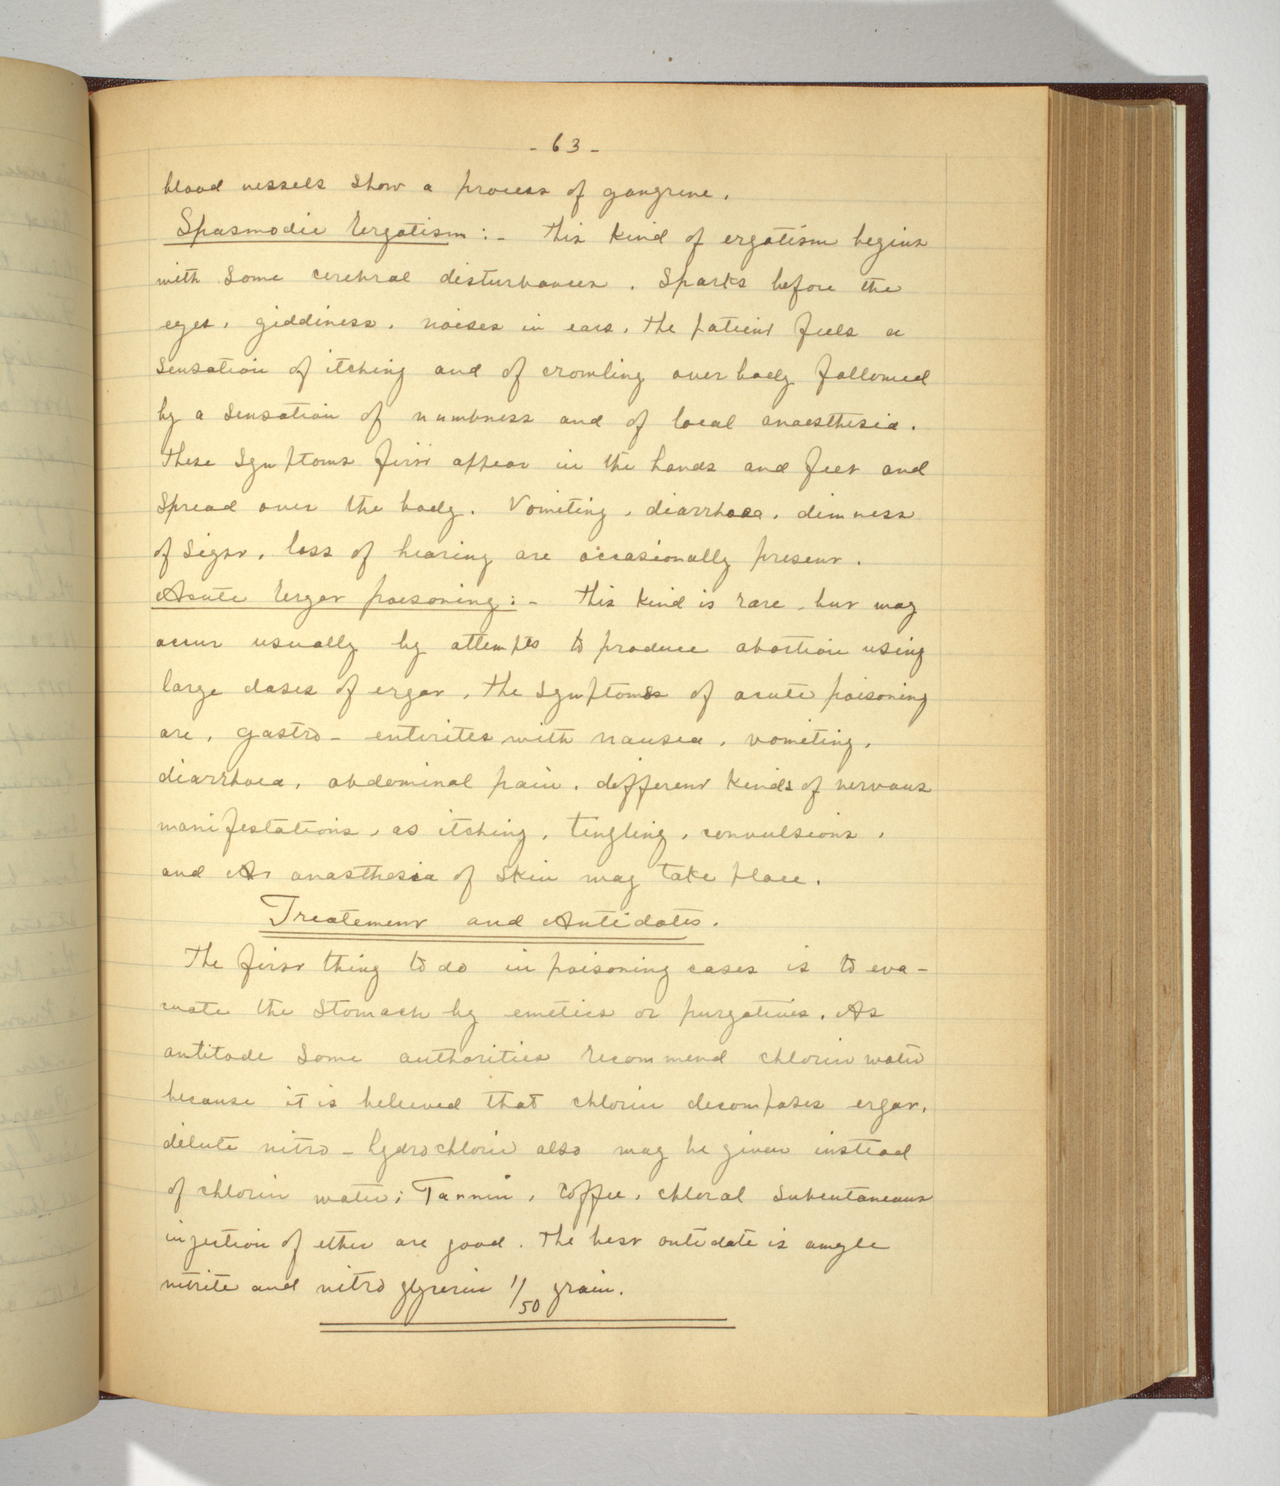 - 63 -
blood vessels show a process of gangrene.
Spasmodic Ergotism :- This kind of ergotism begins
with some cerebral disturbances. Sparks before the
eyes, giddiness, noises in ears, the patient feels a
sensation of itching and of crowling over body followed
by a sensation of numbness and of local anaesthesia.
These symptoms first appear in the hands and feet and
spread over the body. Vomiting, diarrhoea, dimness
of sight, loss of hearing are occasionally present.
Acute Ergot poisoning :- This kind is rare, but may
occur usually by attempts to produce abortion using
large doses of ergot, the symptoms of acute poisoning
are, gastro-enterites with nausea, vomiting,
diarrhoea, abdominal pain, different kinds of nervous
manifestations, as itching, tingling, convulsions,
and As anasthesia of skin may take place.
Treatement and Antidotes.
The first thing to do in poisoning cases is to eva-
cuate the stomach by emetics or purgatives. As
antitode some authorities recommend chlorin water
because it is believed that chlorin decomposes ergot,
dilute nitro-hydrochloric also may be given instead
of chlorin water; Tannin, coffee, chloral subcutaneous
injection of ether are good. The best antidote is amyle
nitrite and nitro glycerin 1/50 grain.